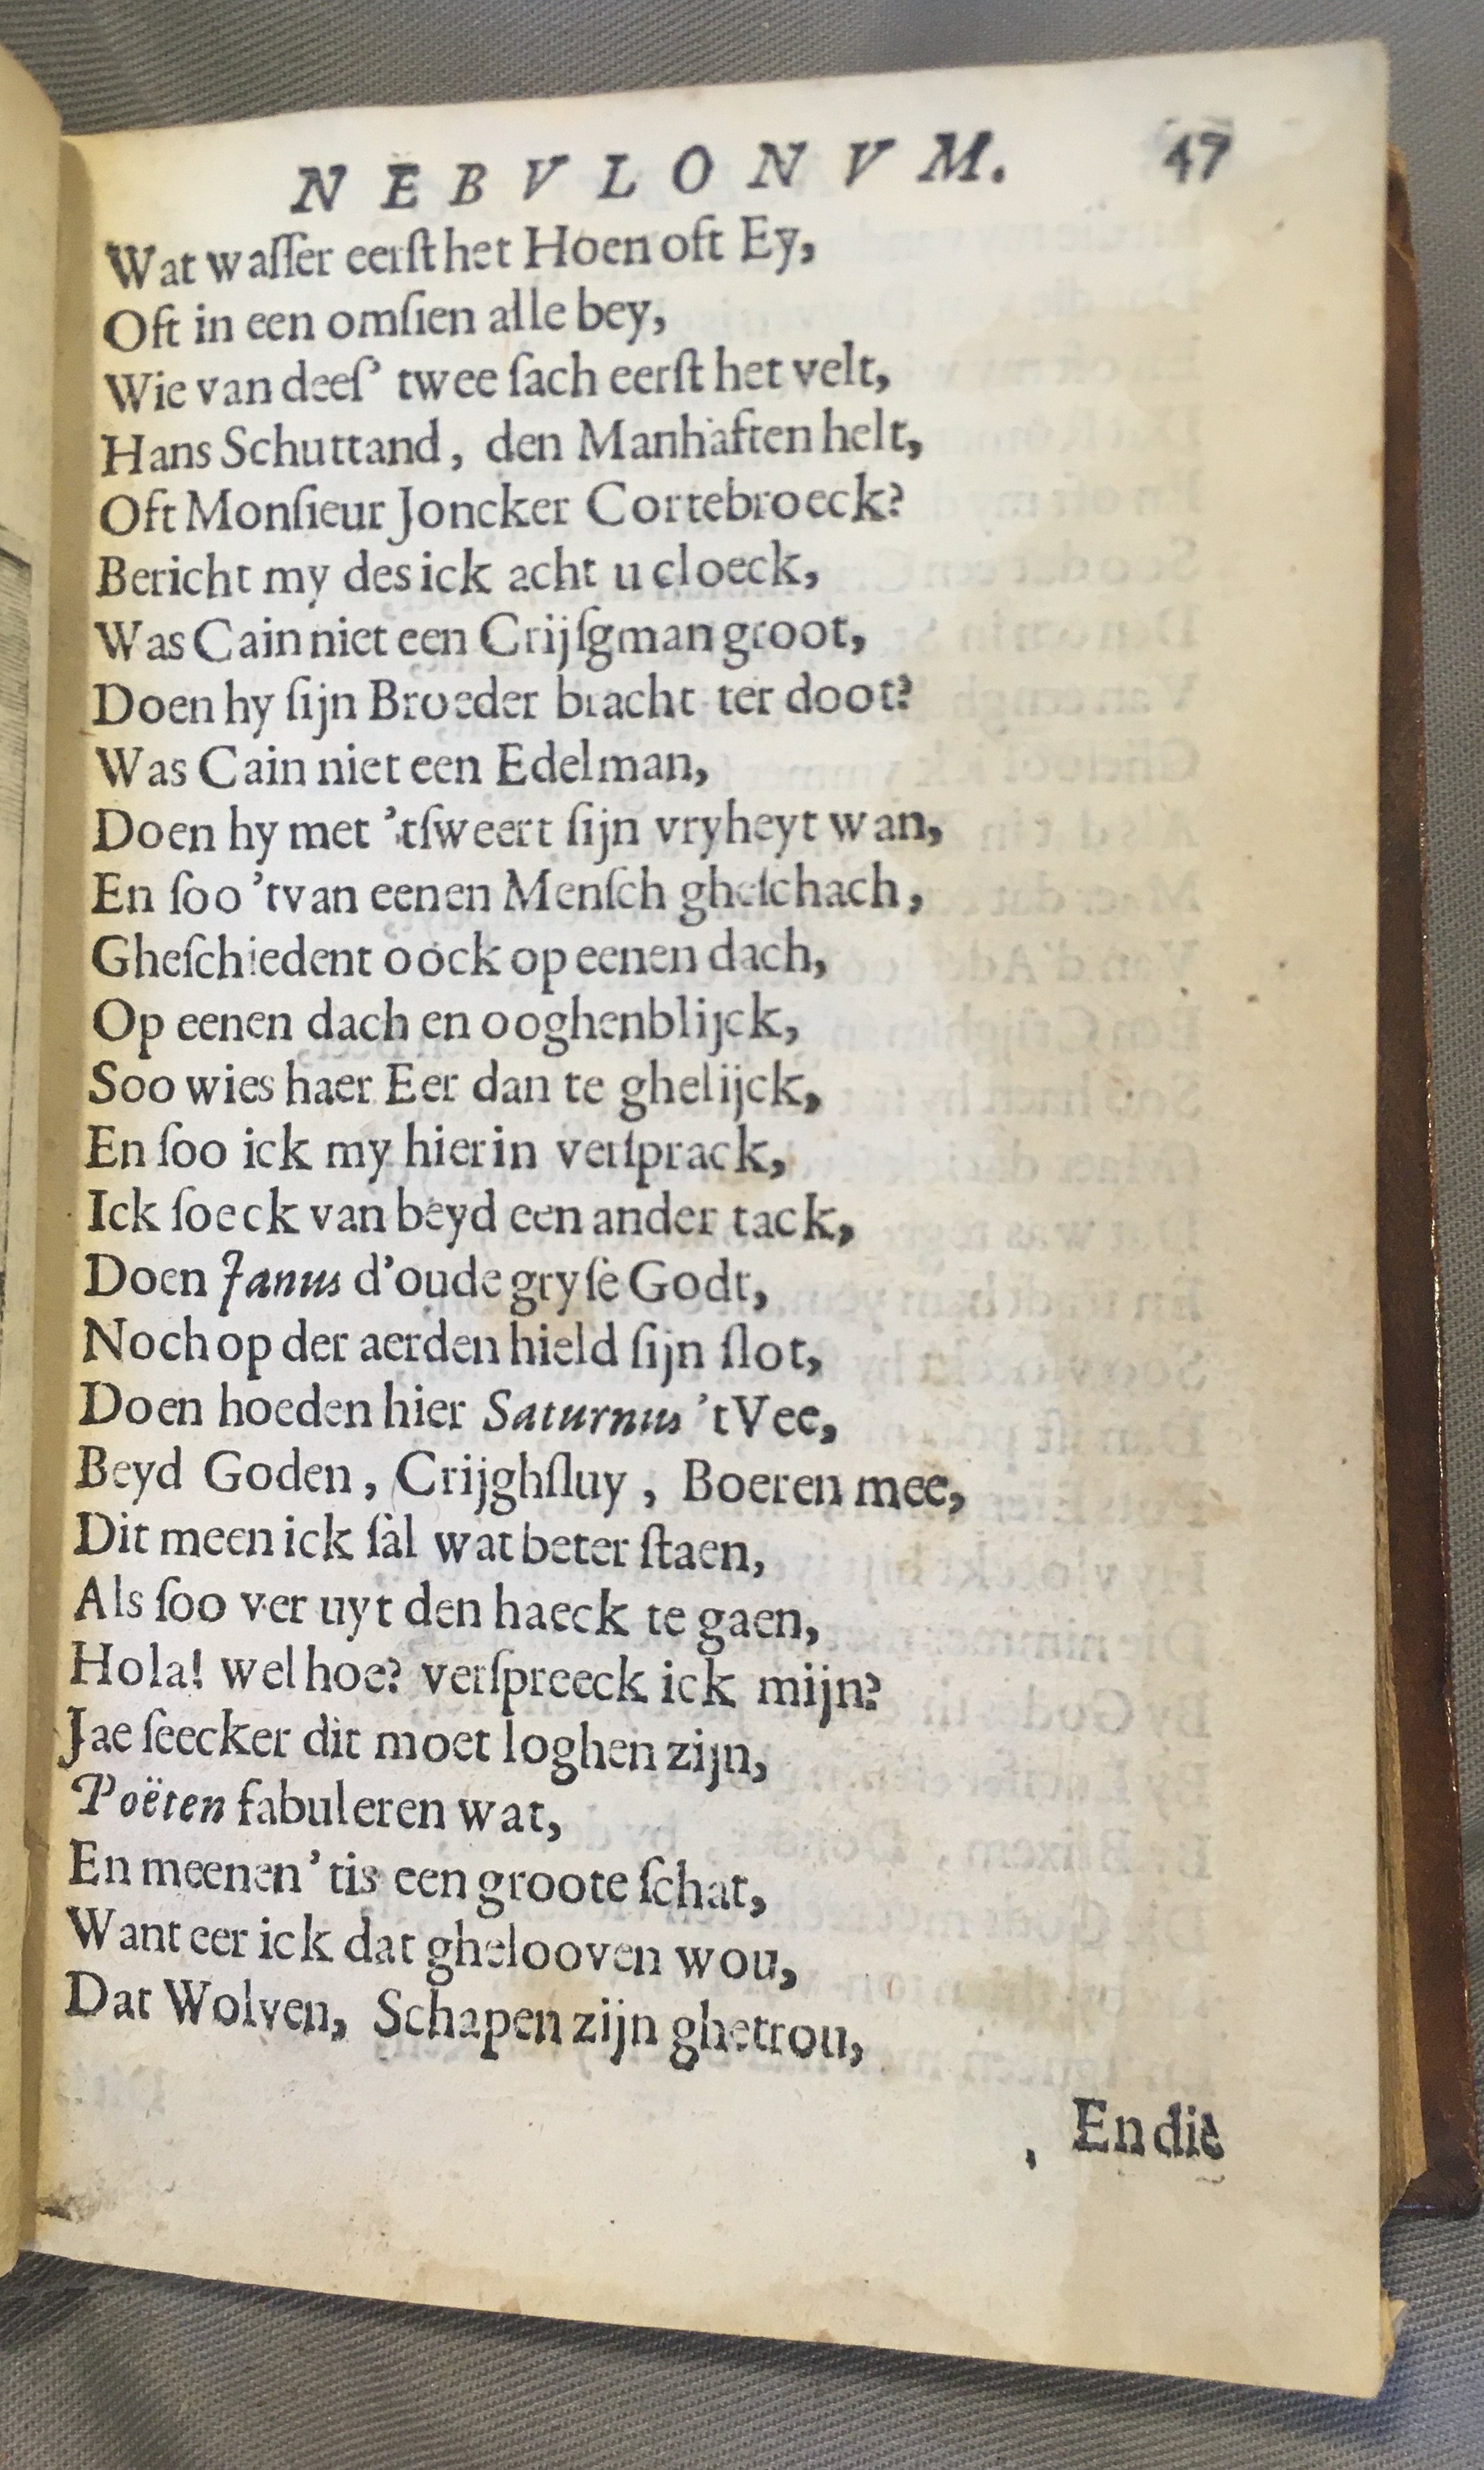 NEBVLONVM. 47
Wat waſſer eerſt het Hoen oft Ey,
Oft in een omſien alle bey,
Wie van deeſ' twee ſach eerſt het velt,
Hans Schuttand, den Manhaften helt,
Oft Monſieur Joncker Cortebroeck?
Bericht my des ick acht u cloeck,
Was Cain niet een Crijſgman groot,
Doen hy ſijn Broeder bracht ter doot?
Was Cain niet een Edelman,
Doen hy met 'tſweert ſijn vryheyt wan,
En ſoo 'tvan eenen Menſch gheſchach,
Gheſchiedent oock op eenen dach,
Op eenen dach en ooghenblijck,
Soo wies haer Eer dan te ghelijck,
En ſoo ick my hier in verſprack,
Ick ſoeck van beyd een ander tack,
Doen Janus d'oude gryſe Godt,
Noch op der aerden hield ſijn ſlot,
Doen hoeden hier Saturnus 't Vee,
Beyd Goden, Crijghſluy, Boeren mee,
Dit meen ick ſal wat beter ſtaen,
Als ſoo ver uyt den haeck te gaen,
Hola! wel hoe? verſpreeck ick mijn?
Jae ſeecker dit moet loghen zijn,
Poëten fabuleren wat,
En meenen 'tis een groote ſchat,
Want eer ick dat ghelooven wou,
Dat Wolven, Schapen zijn ghetrou,
En die